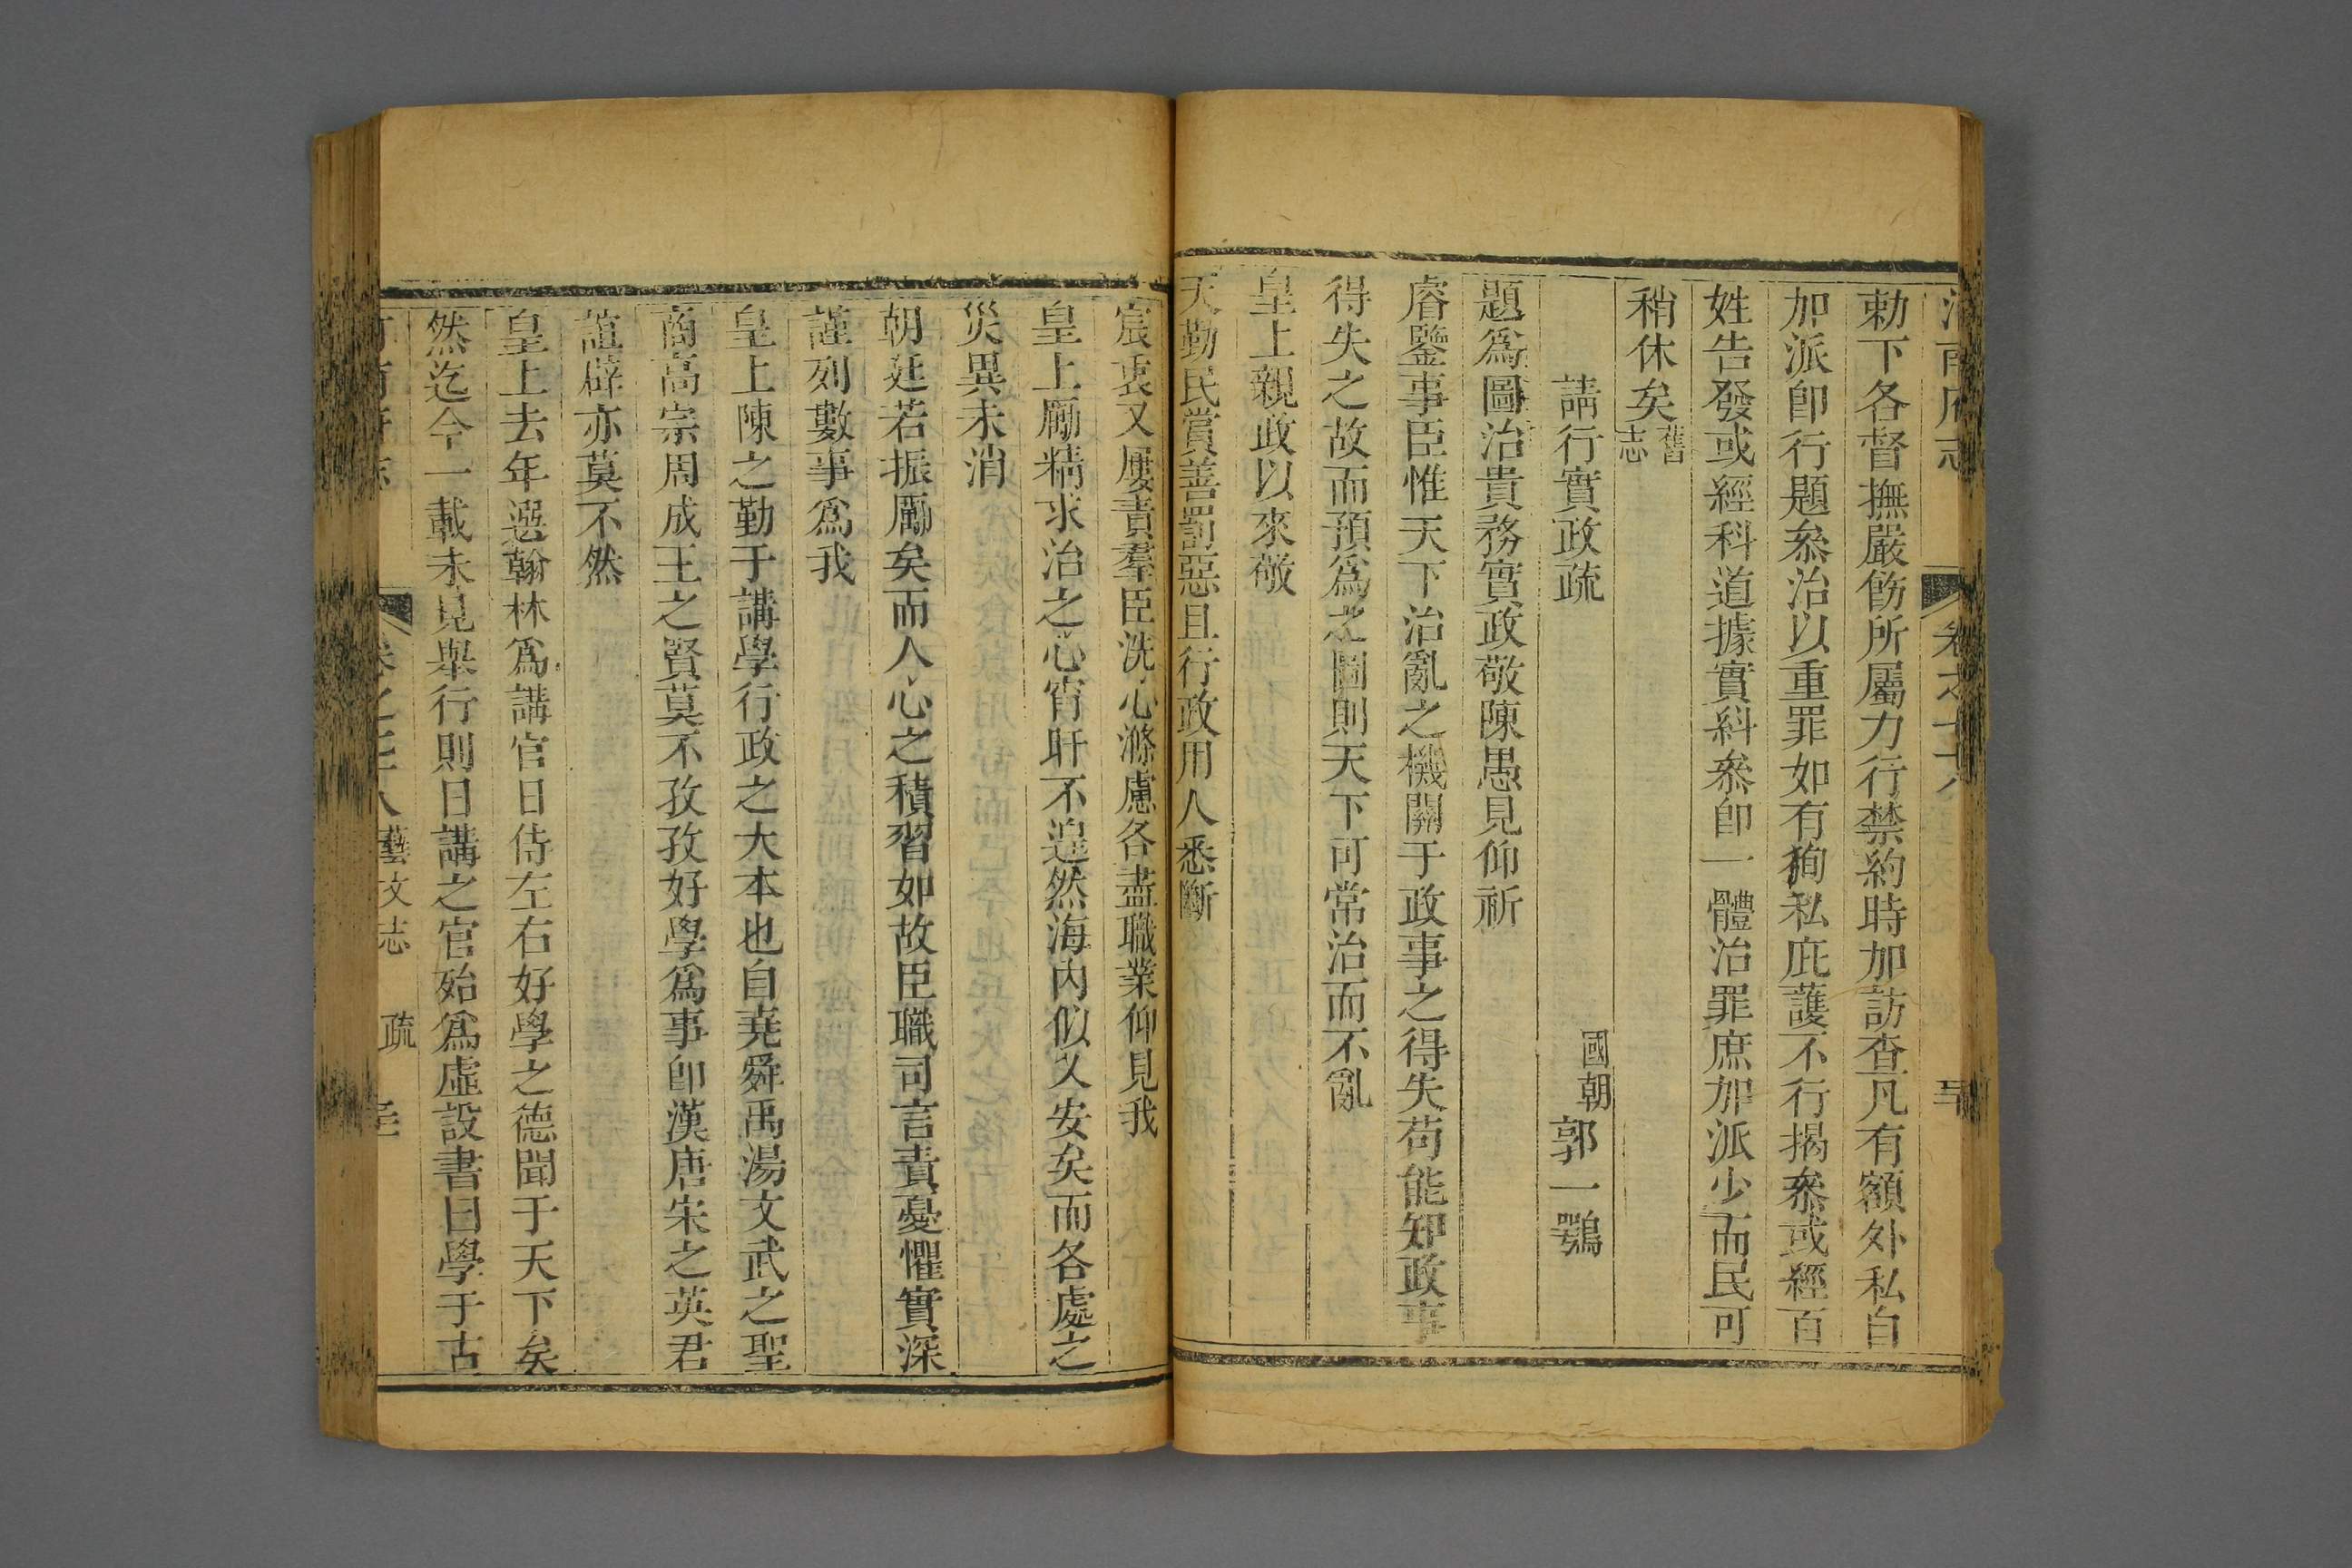 勅下各督撫嚴飭所屬力行禁約時加訪查凡有額外私自
加派卽行題叅治以重罪如有狥私庇護不行揭叅或經百
姓告發或經科道據實糾叅卽一體治罪庶加派少而民可
稍休矣舊志
請行實政疏 國朝郭一鶚
題爲圖治貴務實政敬陳愚見仰祈
睿鑒事臣惟天下治亂之機關于政事之得失苟能知政事
得失之故而預爲之圖則天下可常治而不亂
皇上親政以來敬
天勤民賞善罰惡且行政用人悉斷
宸衷又屢責羣臣洗心滌慮各盡職業仰見我
皇上勵精求治之心宵旰不遑然海內似乂安矣而各處之
災異未消
朝廷若振勵矣而人心之積習如故臣職司言責憂懼實深
謹列數事爲我
皇上陳之勤于講學行政之大本也自堯舜禹湯文武之聖
商高宗周成王之賢莫不孜孜好學爲事卽漢唐宋之英君
誼辟亦莫不然
皇上去年選翰林爲講官日侍左右好學之德聞于天下矣
然迄今一載未見舉行則日講之官殆爲虛設書曰學于古
藝文志 疏